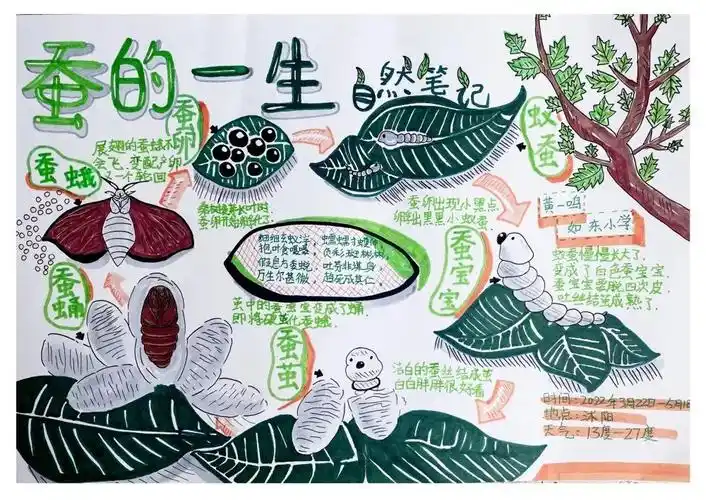 蚕的一生
自然笔记
蚕卵
蚁蚕
展翅的蚕蛾不
会飞,交配产卵
又一个轮回
蚕蛾
蚕卵出现小黑点,
孵出黑黑小蚁蚕
黄一鸣
如东小学
蚕宝宝
蚁蚕慢慢长大了,
变成了白色蚕宝宝,
蚕宝宝要脱四次皮,
吐丝结茧成熟了.
蚕蛹
茧中的蚕宝宝变成了蛹,
即将破茧化蚕蛾.
蚕茧
洁白的蚕丝结成茧
白白胖胖很好看
时间:2022年3月22日-5月1日
地点:沭阳
天气:13度-27度